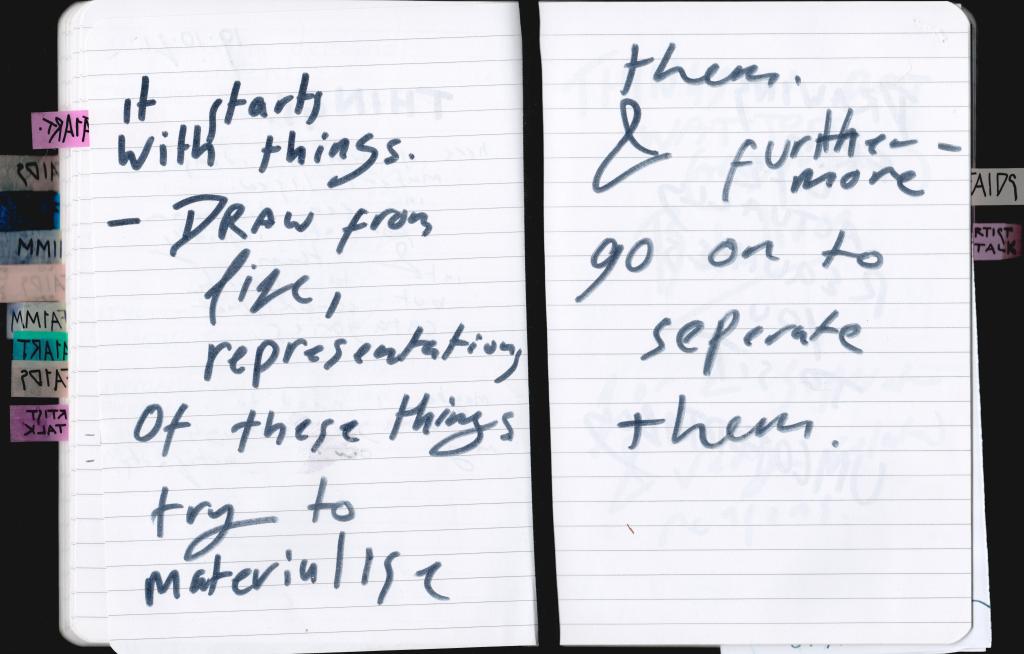 it starts
with things.
- DRAW from
life,
representations
of these things
try to
materialise
them.
& further-
more
go on to
seperate
them.
A1ART.
FA1MM
ARTIST
TALK